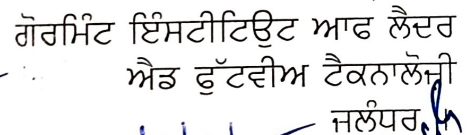 ਗੋਰਮਿੰਟ ਇੰਸਟੀਟਿਊਟ ਆਫ ਲੈਦਰ
ਐਡ ਫੁੱਟਵੀਅ ਟੈਕਨਾਲੋਜੀ
ਜਲੰਧਰ